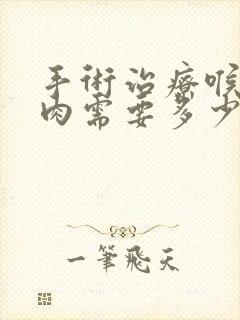 手術治療喉
肉需要多少
一筆飛天